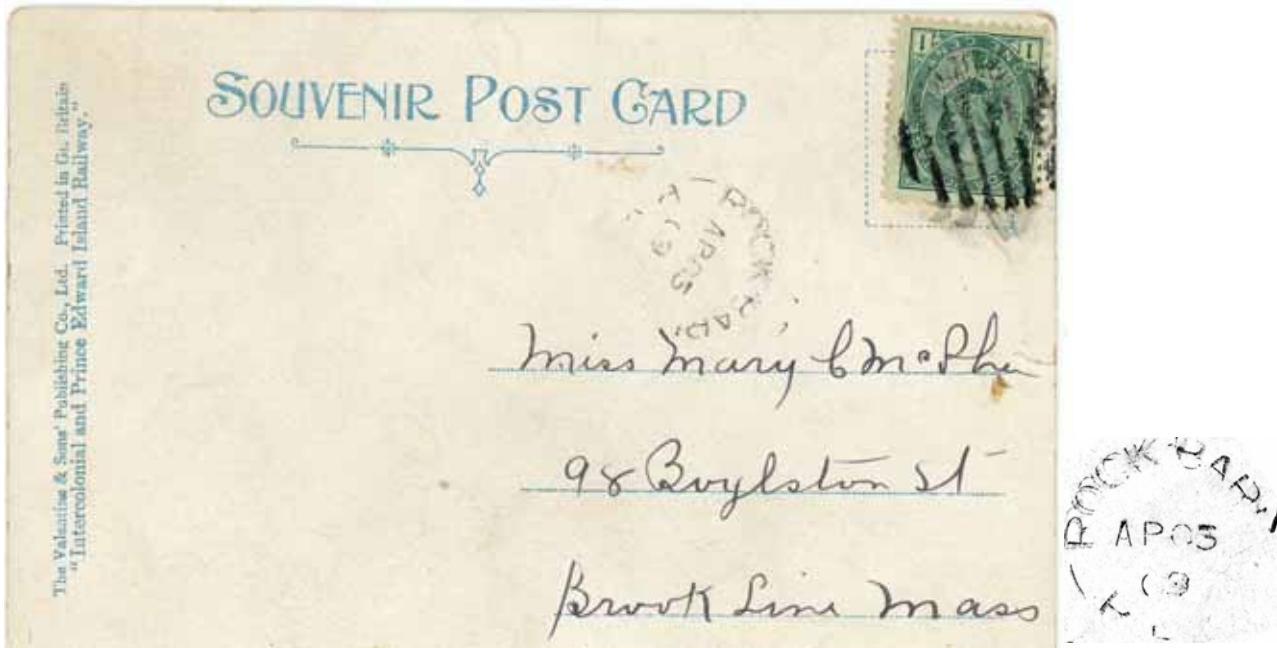 SOUVENIR POST CARD
The Valentine & Sons' Publishing Co., Ltd. Printed in Gt. Britain
"Intercolonial and Prince Edward Island Railway."
1 1
ROCK BAR
AP 05
09
Miss Mary C McPhee
98 Boylston St
Brook Line Mass
ROCK BAR
AP 05
09